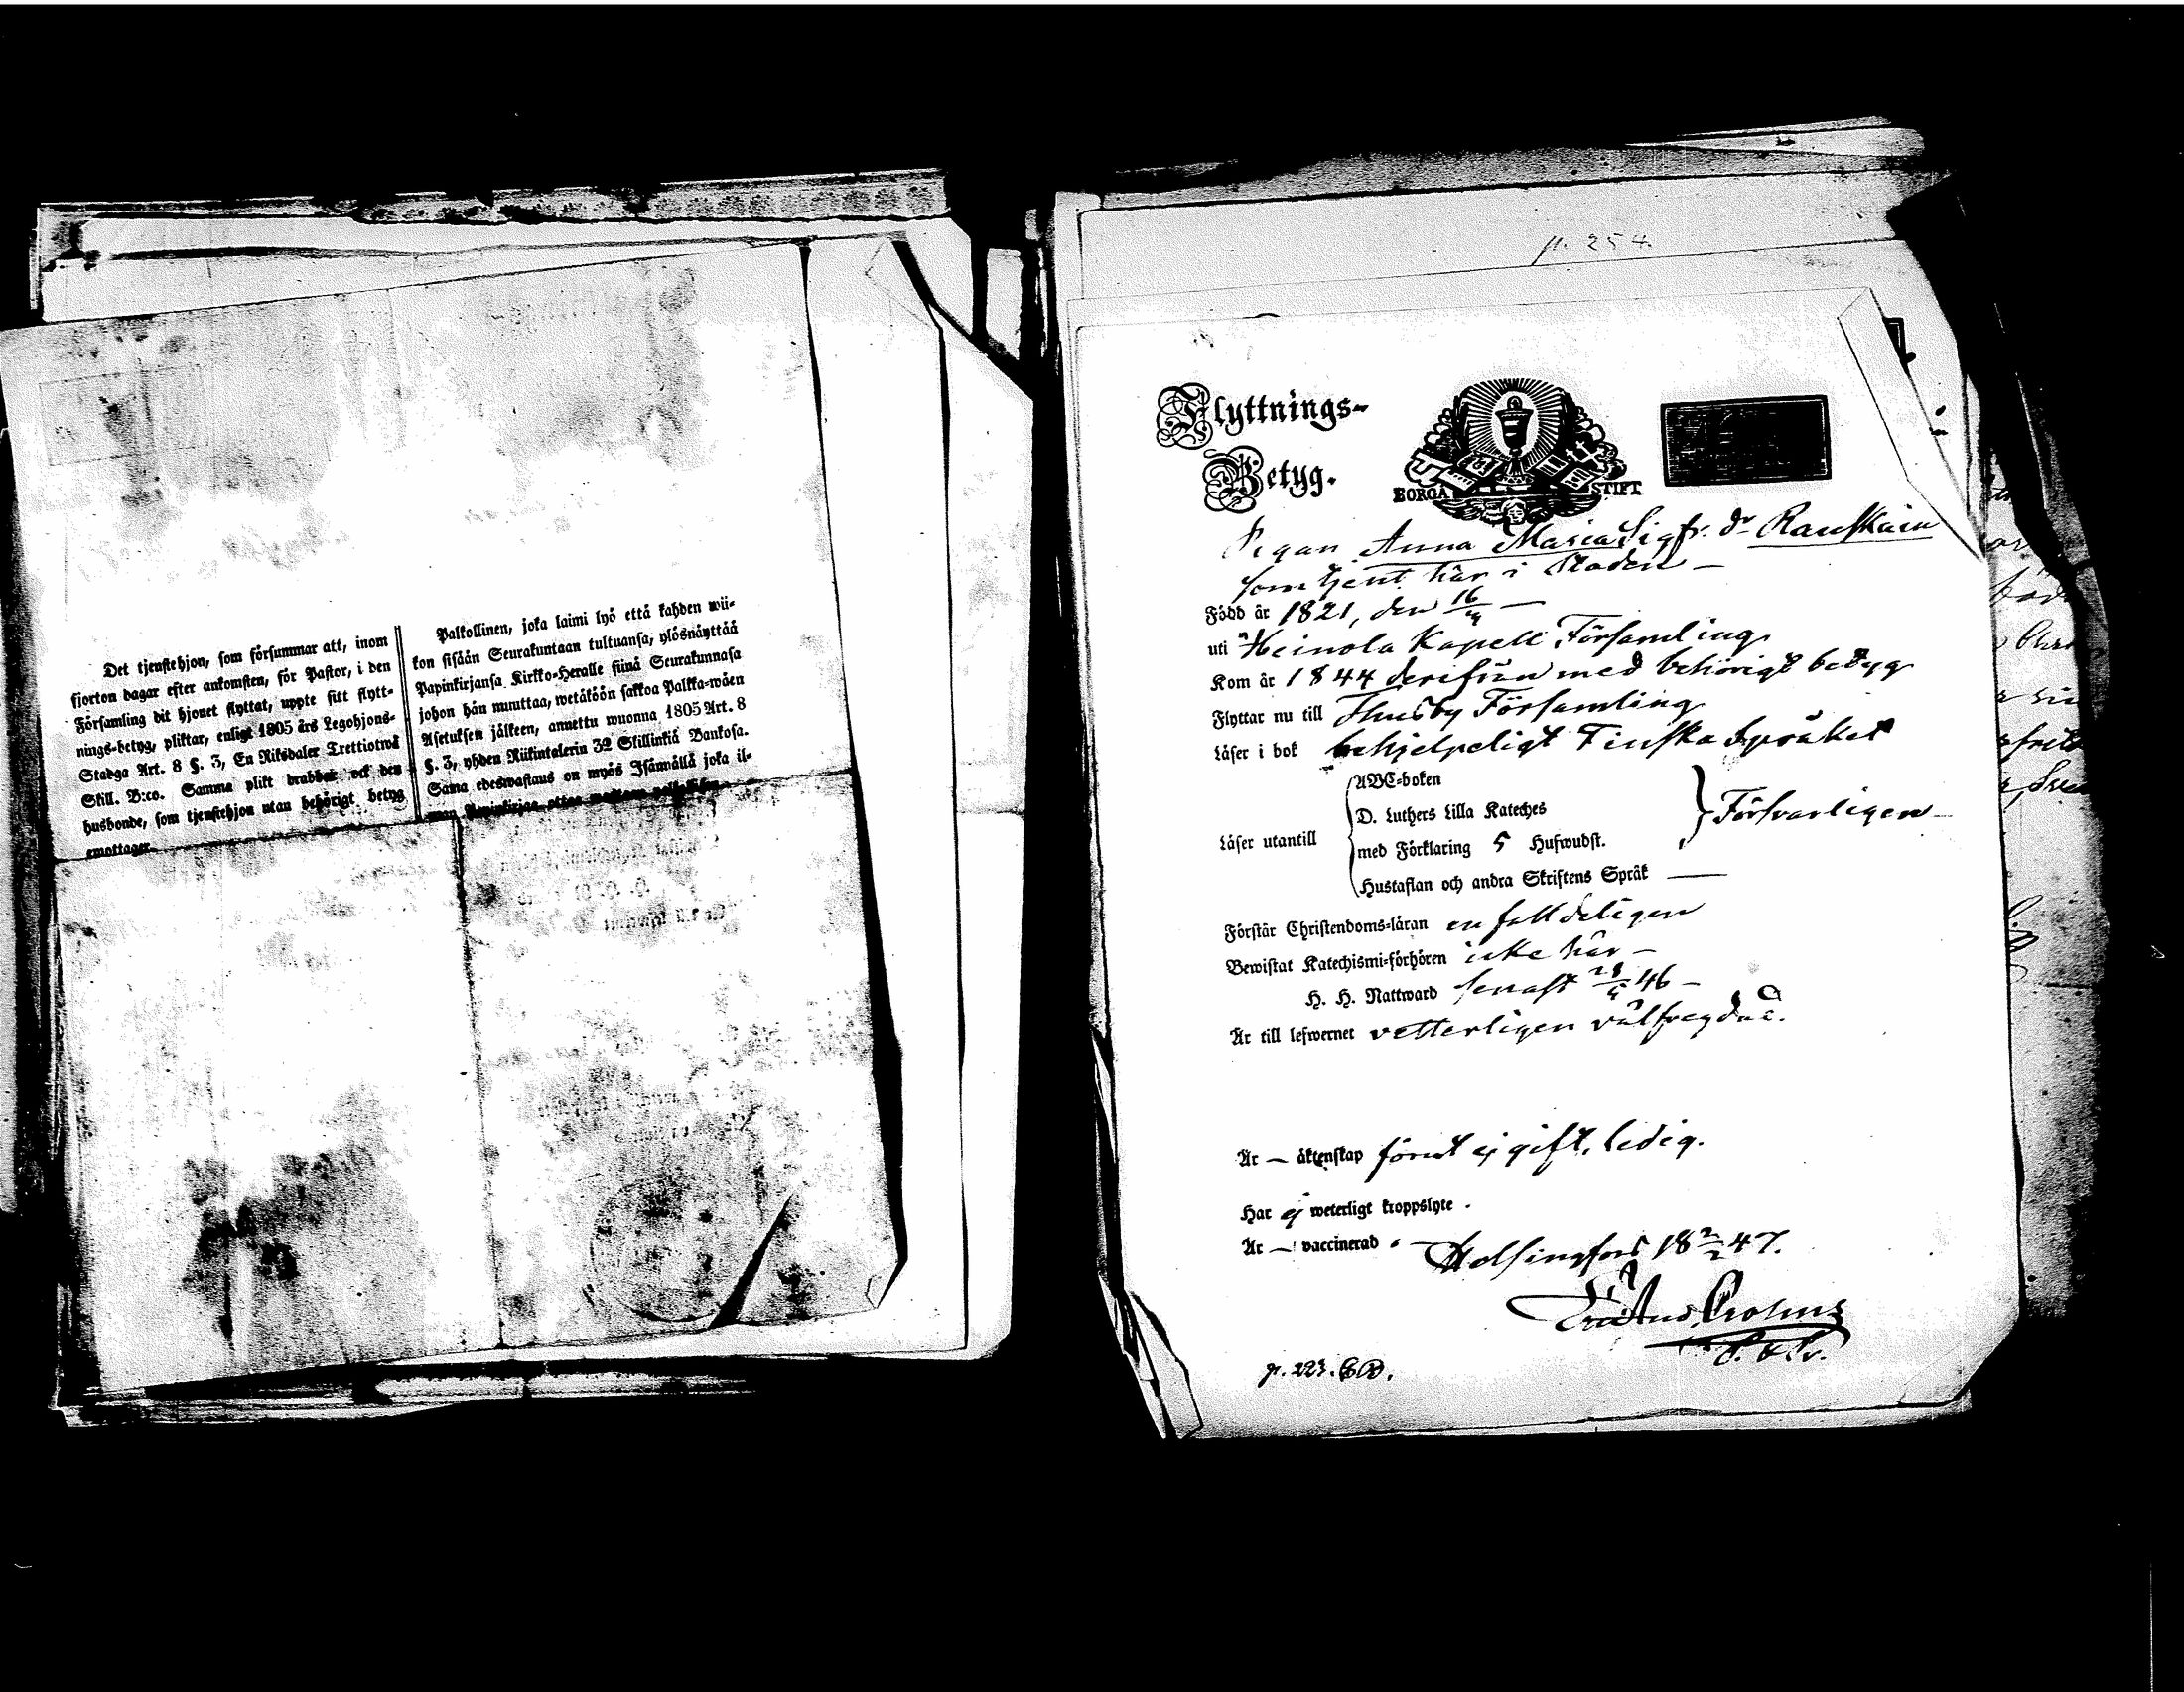 Det tjenstehjon, som försummar att, inom
fjorton dagar efter ankomsten, för Pastor, i den
Församling dit hjonet flyttat, uppte sitt flytt-
nings-betyg, pliktar, enligt 1805 års Legohjons-
Stadga Art. 8 §. 3, En Riksdaler Trettiotwå
Skill. B:co. Samma plikt drabbar ock den
husbonde, som tjenstehjon utan behörigt betyg
emottager.
Palkollinen, joka laimi lyö että kahden wii-
kon sisään Seurakuntaan tultuansa, ylösnäyttää
Papinkirjansa Kirkko-Herralle siinä Seurakunnasa
johon hän muuttaa, wetäköön sakkoa Palkka-wäen
Asetuksen jälkeen, annettu wuonna 1805 Art. 8
§. 3, yhden Riikintalerin 32 Skillinkiä Bankosa.
Sama edeswastaus on myös Isännällä joka il-
man Papinkirjaa ottaa
p. 254.
Flyttnings-
Betyg.
BORGÅ STIFT
Pigan Anna Maria Sigfr: dr
som tjent här i Staden —
Född år 1821, den 16
uti Heinola Kapell Församling
Kom år 1844 derifrån med behörigt betyg
Flyttar nu till Husby Församling
Läser i bok behjelpeligt Finska Språket
ABC-boken
D. Luthers Lilla Kateches
Läser utantill med Förklaring 5 Hufwudst. Försvarligen —
Hustaflan och andra Skriftens Språk —
Förstår Christendoms-läran enfalldeligen
Bewistat Katechismi-förhören icke här —
H. H. Nattward senast 46 —
Är till lefwernet vetterligen välfregdad.
Är — äktenskap förut ej gift, ledig.
Har ej weterligt kroppslyte .
Är — vaccinerad
Helsingfors 18 2/2 47.
p. 223.